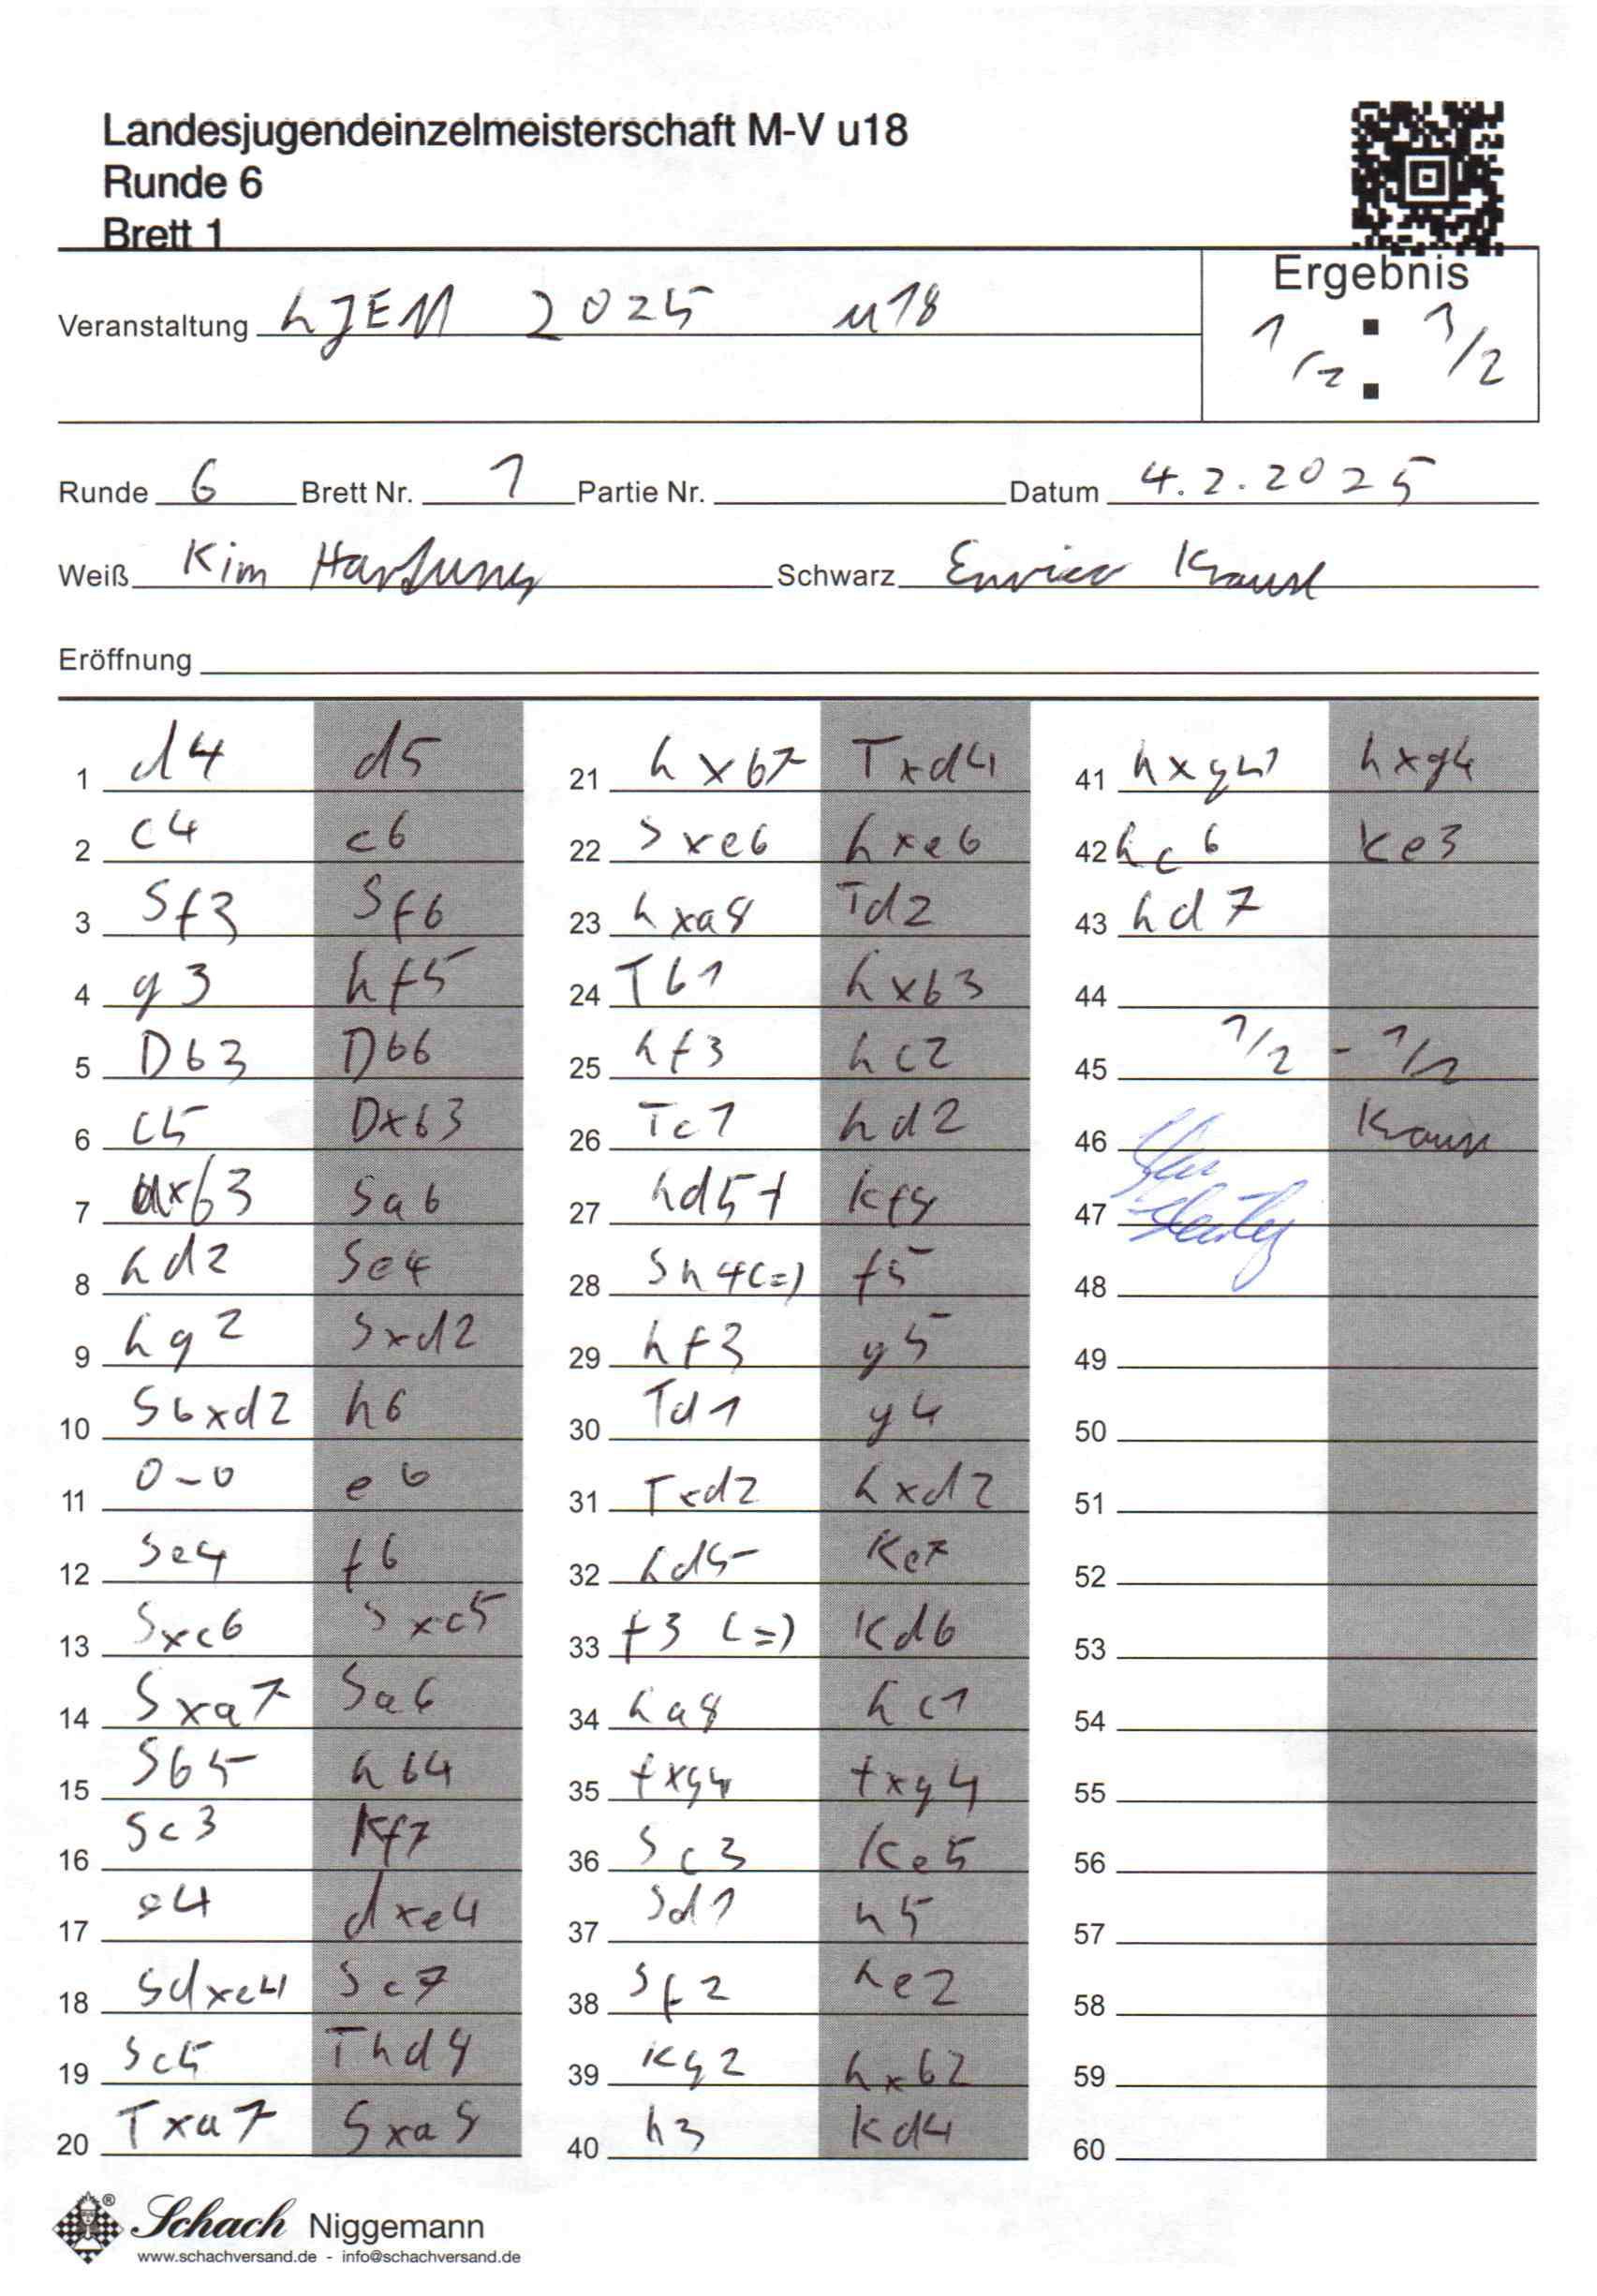 Landesjugendeinzelmeisterschaft M-V u18
Runde 6
Brett 1
Ergebnis
Veranstaltung LJEM 2025 u18
1/2 : 1/2
Runde 6 Brett Nr. 1 Partie Nr. Datum 4.2.2025
Weiß Kim Hartung Schwarz Enrico Krause
Eröffnung
1 d4 d5
2 c4 c6
3 Sf3 Sf6
4 g3 Lf5
5 Db3 Db6
6 c5 Dxb3
7 axb3 Sa6
8 Ld2 Se4
9 Lg2 Sxd2
10 Sbxd2 h6
11 0-0 e6
12 Se4 f6
13 Sxc6 Sxc5
14 Sxa7 Sa6
15 Sb5 Lb4
16 Sc3 Kf7
17 e4 dxe4
18 Sdxe4 Sc7
19 Sc5 Thd8
20 Txa7 Sxa8
21 Lxb7 Txd4
22 Sxe6 Lxe6
23 Lxa8 Td2
24 Tb1 Lxb3
25 Lf3 Lc2
26 Tc1 Ld2
27 Ld5+ Kf8
28 Sh4(=) f5
29 Lf3 g5
30 Td1 g4
31 Txd2 Lxd2
32 Ld5 Ke7
33 f3 (=) Kd6
34 La8 Lc1
35 fxg4 fxg4
36 Sc3 Ke5
37 Sd1 h5
38 Sf2 Le2
39 Kg2 Lxb2
40 h3 Kd4
41 hxg4 hxg4
42 Lc6 Ke3
43 Ld7
44
45 1/2 - 1/2
46 Krause
47
48
49
50
51
52
53
54
55
56
57
58
59
60
Schach Niggemann
www.schachversand.de - info@schachversand.de